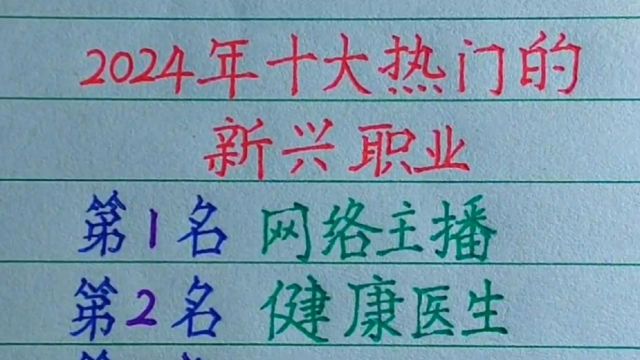 2024年十大热门的
新兴职业
第1名 网络主播
第2名 健康医生